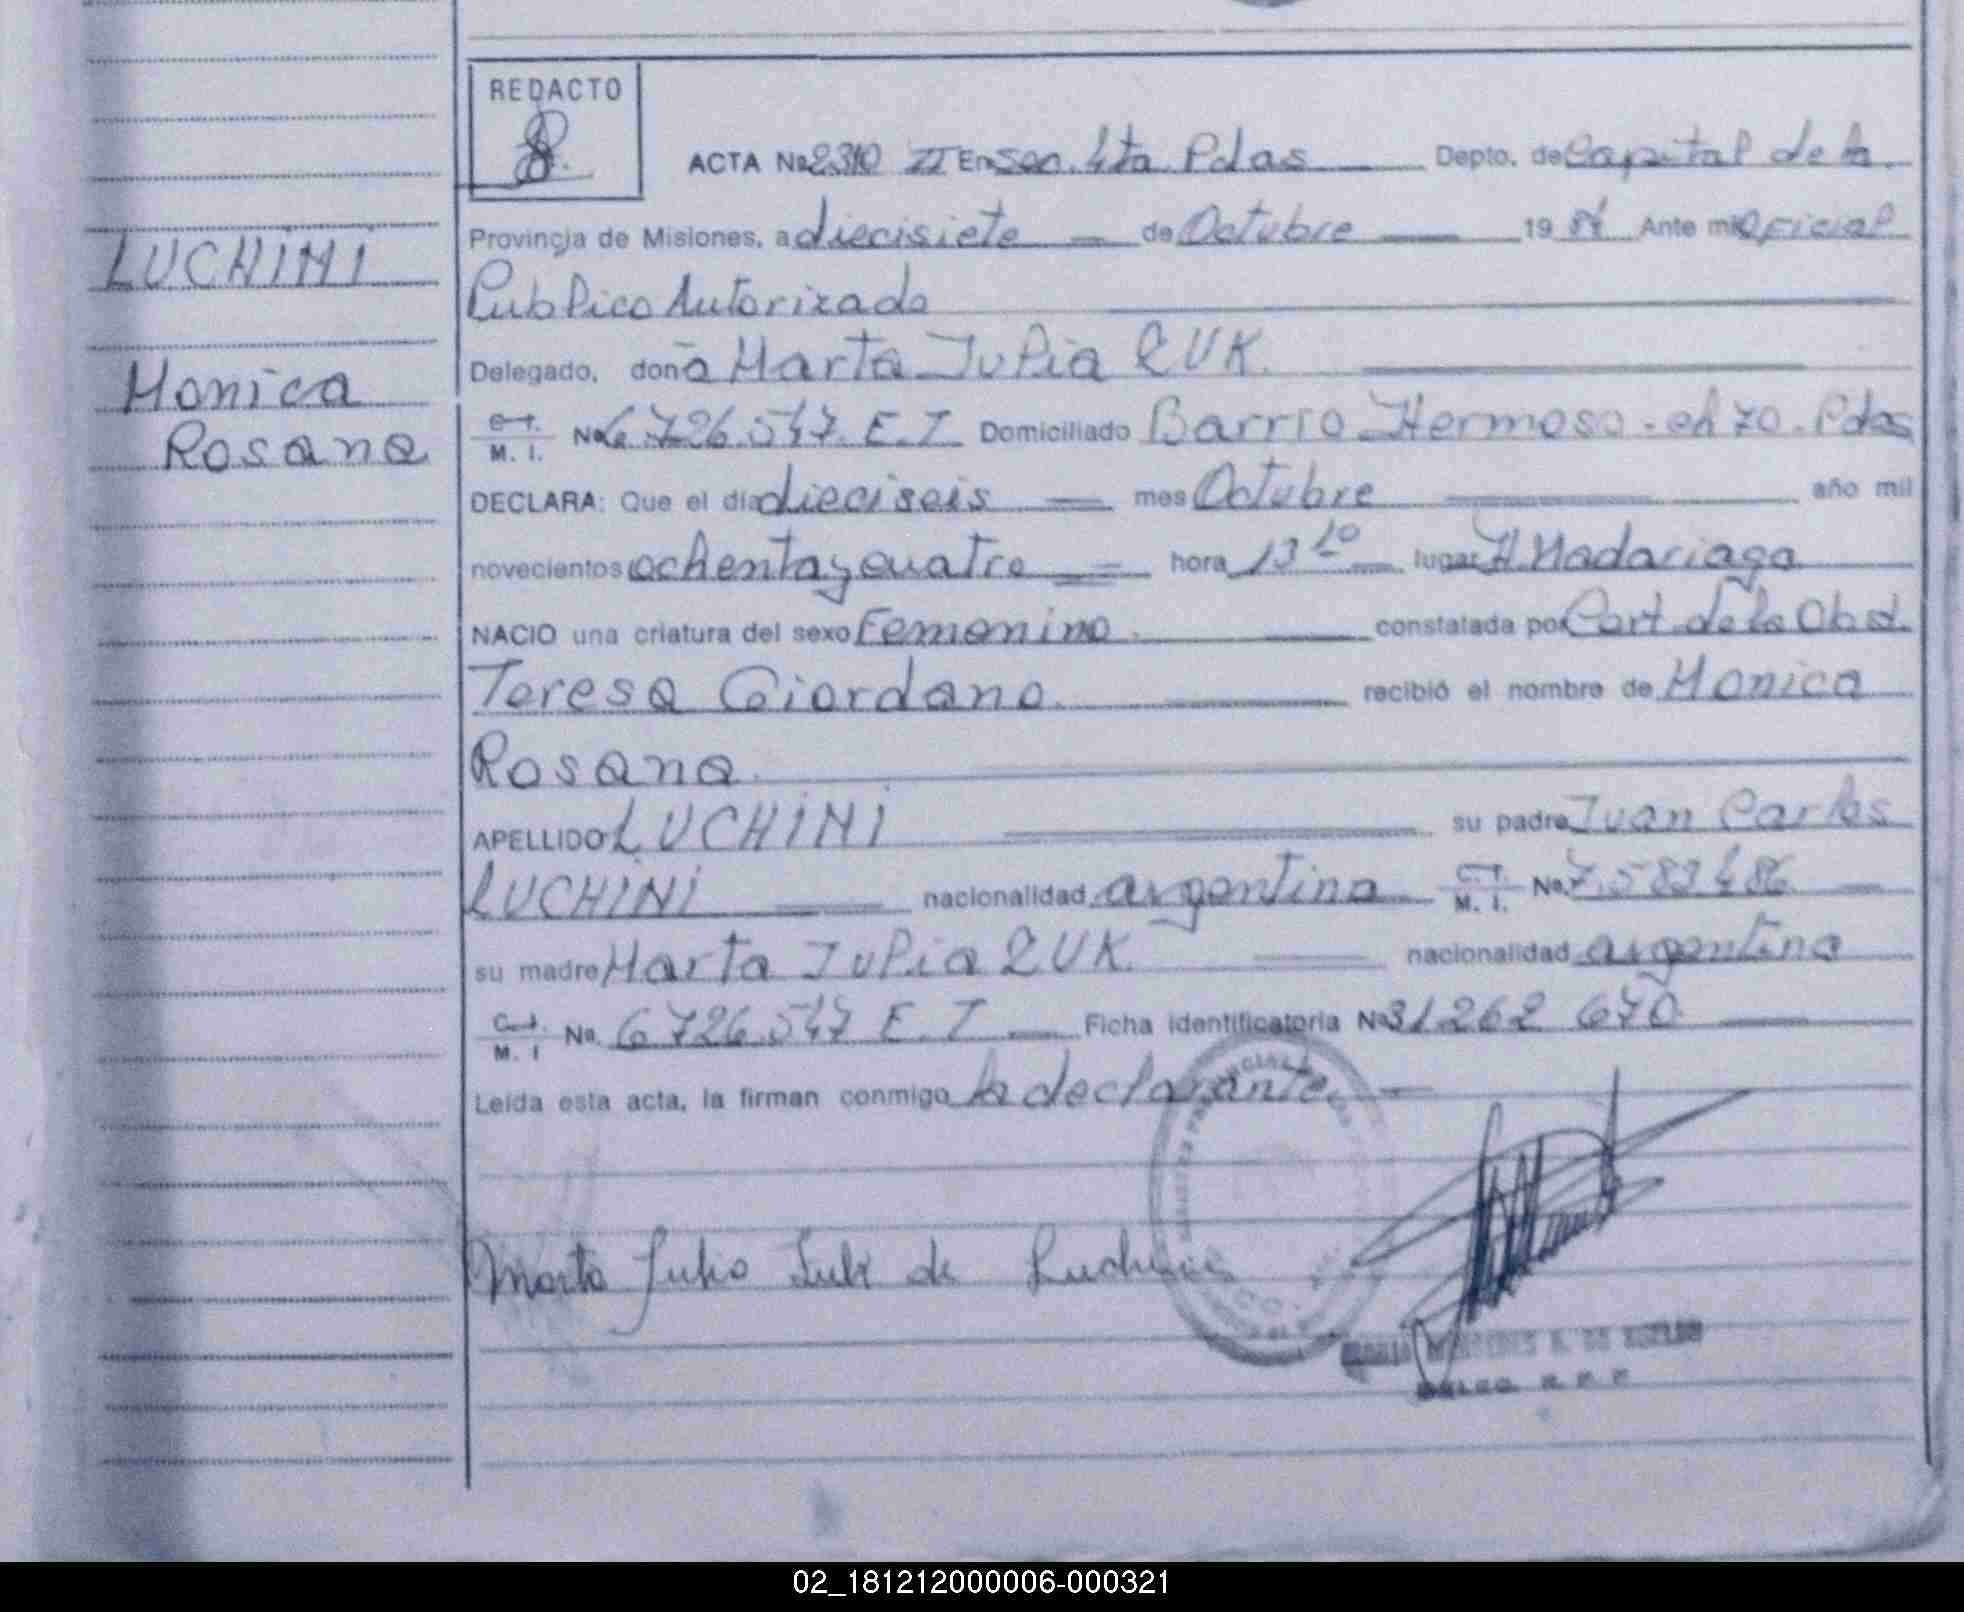 REDACTO
ACTA No 2310 II En Sec. 4ta Pdas Depto. de Capital de la
Provincia de Misiones, a diecisiete de Octubre 19 84 Ante mi Oficial
LUCHINI
Publico Autorizado
Delegado, doña Marta Julia ZUK.
Monica
Rosana
C. I.
M. I. No. 6.726.547. E.T Domiciliado Barrio Hermoso - Pdas
DECLARA: Que el día dieciseis mes Octubre año mil
novecientos ochenta y cuatro hora 13 10 lugar H. Madariaga
NACIO una criatura del sexo Femenino. constatada por Cert. de la Obst.
Teresa Giordano. recibió el nombre de Monica
Rosana.
APELLIDO LUCHINI su padre Juan Carlos
LUCHINI nacionalidad argentina C. I.
M. I. No. 7.583.486
su madre Marta Julia ZUK. nacionalidad argentina
C. I.
M. I No. 6.726.547 E. T Ficha identificatoria No 31.262 670.
Leída esta acta, la firman conmigo la declarante
Marta Julia Suk de Luchini
02_181212000006-000321